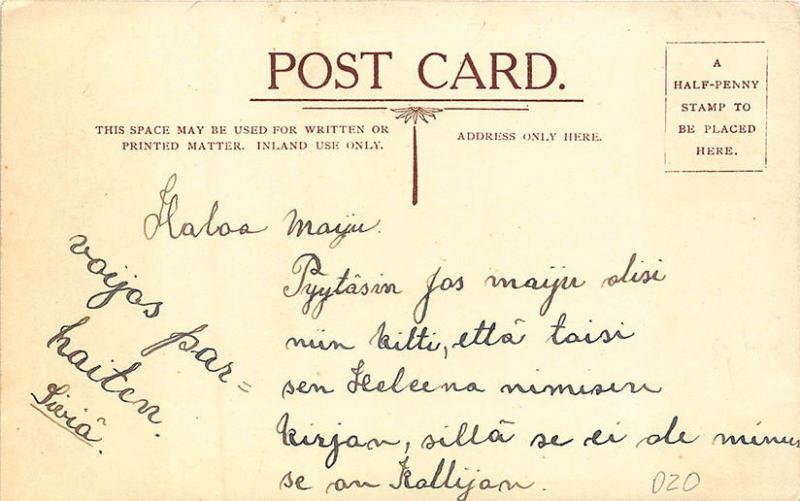 POST CARD.
THIS SPACE MAY BE USED FOR WRITTEN OR
PRINTED MATTER. INLAND USE ONLY.
ADDRESS ONLY HERE.
A
HALF-PENNY
STAMP TO
BE PLACED
HERE.
Haloa Maiju.
Pyytäsin Jos maiju olisi
niin kiltti, että toisi
sen Heleena nimisen
kirjan, sillä se ei ole minun
se on Kallijan.
voijos par=
haiten.
Siviä.
020